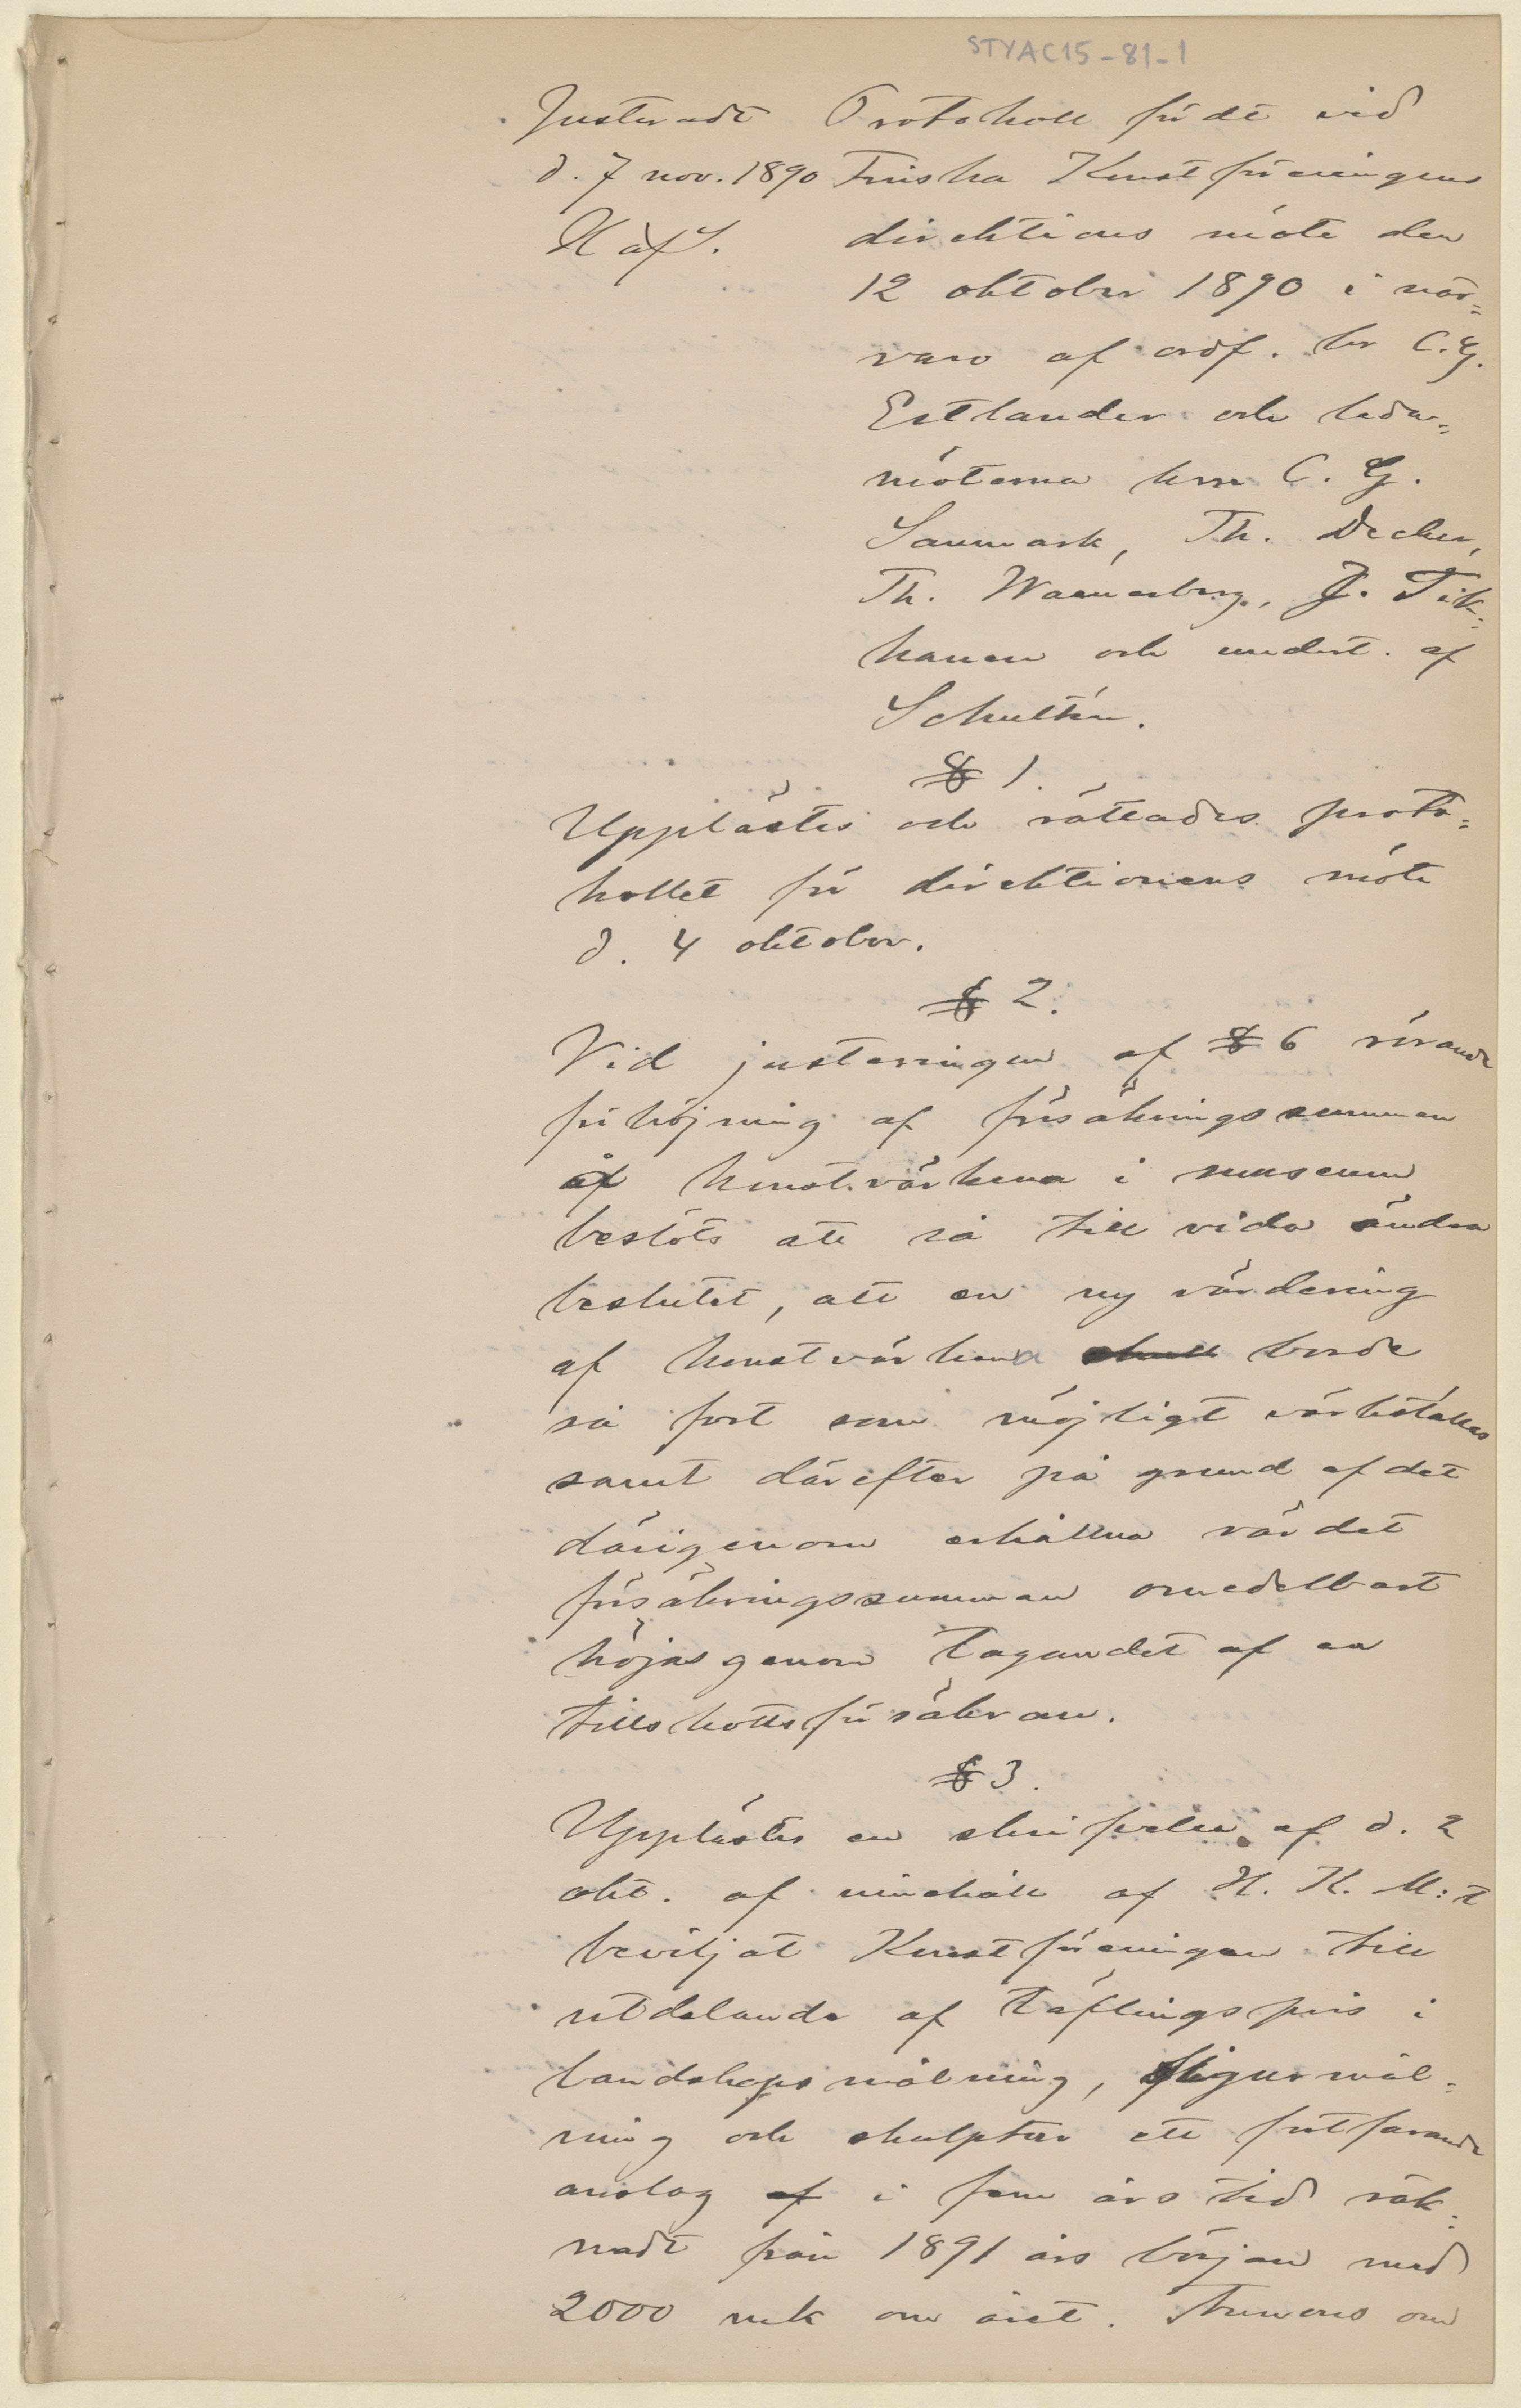 STYAC15-81-1
Justeradt
d. 7 nov. 1890
H af S.
Protokoll fördt vid
Finska Konstföreningens
direktions möte den
12 oktober 1890 i när=
varo af ordf. hr C. G.
Estlander och leda=
möterna hrr C. G.
Sanmark, Th. Decker,
Th. Waenerberg, J. Tik=
kanen och undert. af
Schultén.
§ 1.
Upplästes och rättades proto=
kollet för direktionens möte
d. 4 oktober.
§ 2.
Vid justeringen af § 6 rörande
förhöjning af försäkringssumman
af konstvärkena i museum
beslöts att så till vida ändra
beslutet, att en ny värdering
af konstvärkena skall borde
så fort som möjligt värkställas
samt därefter på grund af det
därigenom erhållna värdet
försäkringssumman omedelbart
höjas genom tagandet af en
tillskottsförsäkran.
§ 3.
Upplästes en skrifvelse af d. 2
okt. af innehåll af H. K. M:t
beviljat Konstföreningen till
utdelande af täflingspris i
landskapsmålning, figurmål=
ning och skulptur ett fortfarande
anslag af i fem års tid räk=
nadt från 1891 års början med
2000 mk om året. Annons om